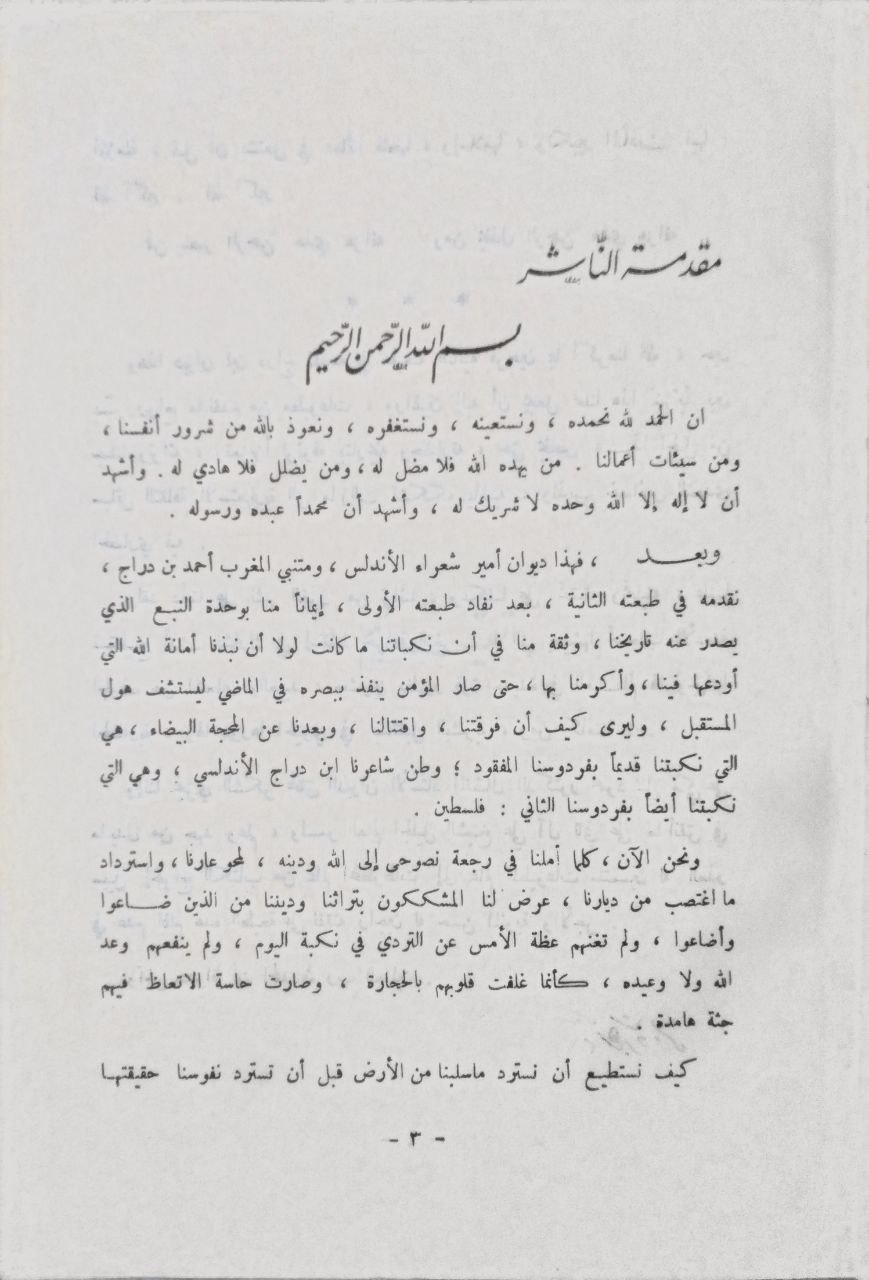 مقدمة النَّاشر
بسم اللّه الرَّحمن الرَّحيم
ان الحمد لله نحمده ، ونستعينه ، ونستغفره ، ونعوذ بالله من شرور أنفسنا ،
ومن سيئات أعمالنا . من يهده الله فلا مضل له ، ومن يضلل فلا هادي له . وأشهد
أن لا إله إلا الله وحده لا شريك له ، وأشهد أن محمداً عبده ورسوله .
وبعـــد ، فهذا ديوان أمير شعراء الأندلس ، ومتنبي المغرب أحمد بن دراج ،
نقدمه في طبعته الثانية ، بعد نفاد طبعته الأولى ، إيماناً منا بوحدة النبع الذي
يصدر عنه تاريخنا ، وثقة منا في أن نكباتنا ما كانت لولا أن نبذنا أمانة الله التي
أودعها فينا ، وأكرمنا بها ، حتى صار المؤمن ينفذ ببصره في الماضي ليستشف هول
المستقبل ، وليرى كيف أن فرقتنا ، واقتتالنا ، وبعدنا عن المحجة البيضاء ، هي
التي نكبتنا قديماً بفردوسنا المفقود ؛ وطن شاعرنا ابن دراج الأندلسي ؛ وهي التي
نكبتنا أيضاً بفردوسنا الثاني : فلسطين .
ونحن الآن ، كلما أملنا في رجعة نصوحى إلى الله ودينه ، لمحو عارنا ، واسترداد
ما اغتصب من ديارنا ، عرض لنا المشككون بتراثنا وديننا من الذين ضــاعوا
وأضاعوا ، ولم تغنهم عظة الأمس عن التردي في نكبة اليوم ، ولم ينفعهم وعد
الله ولا وعيده ، كأنما غلفت قلوبهم بالحجارة ، وصارت حاسة الاتعاظ فيهم
جثة هامدة .
كيف نستطيع أن نسترد ماسلبنا من الأرض قبل أن تسترد نفوسنا حقيقتهـا
- ٣ -